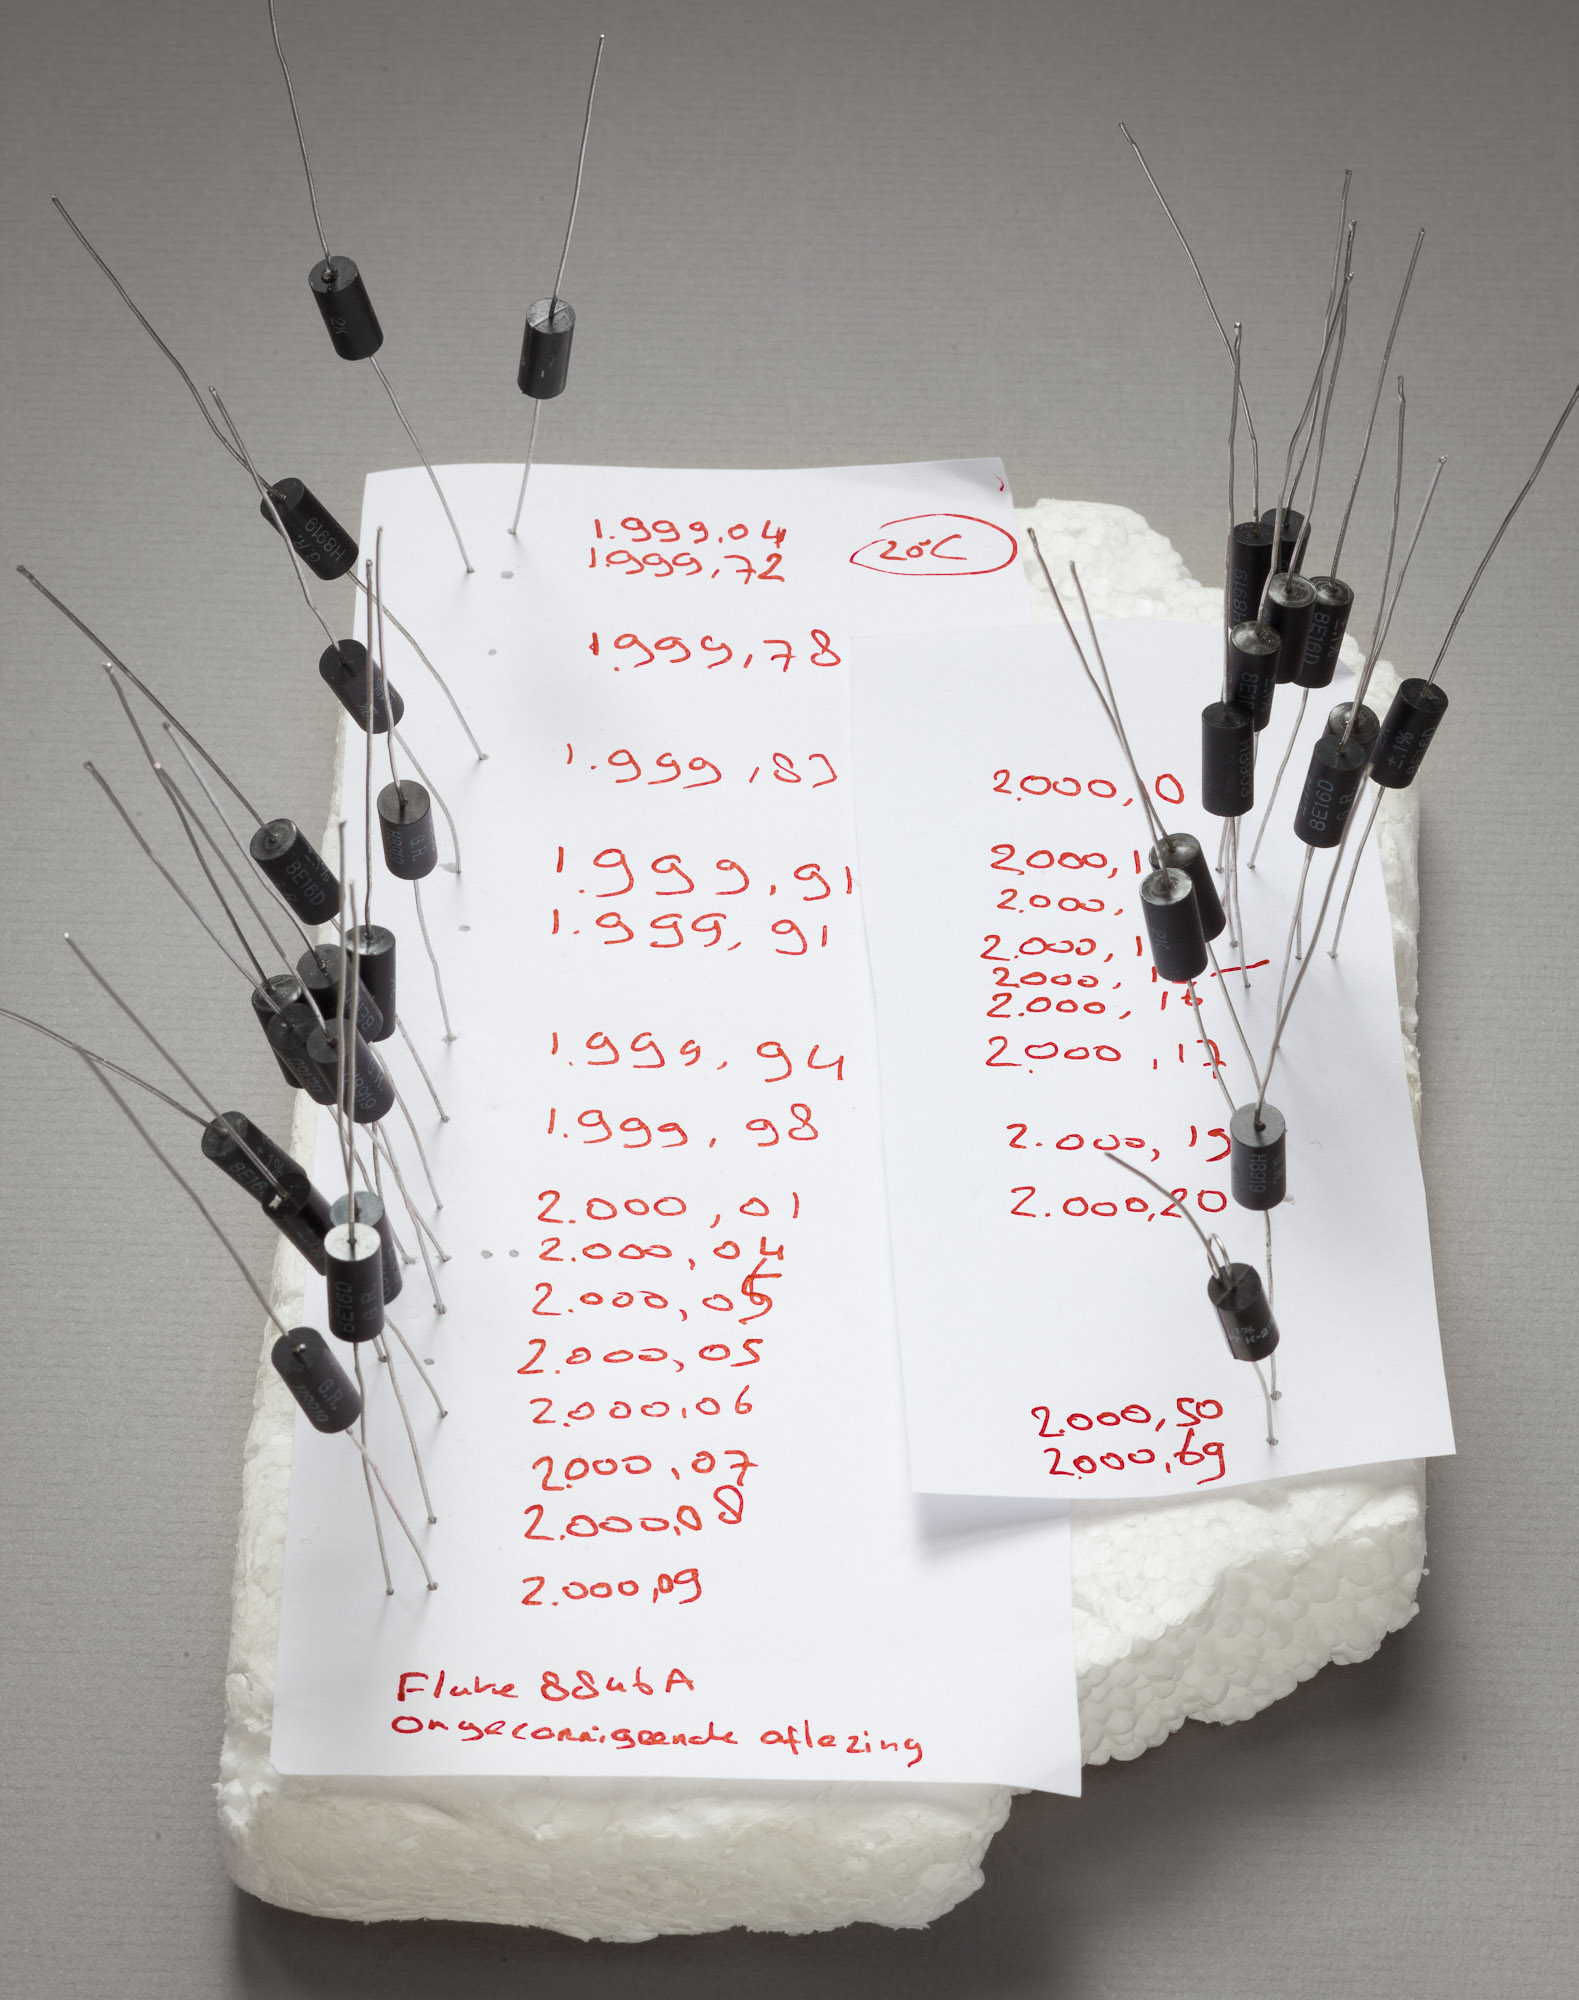 1.999,04
20°C
1.999,72
1.999,78
1.999,83
1.999,91
1.999,91
1.999,94
1.999,98
2.000,01
2.000,04
2.000,05
2.000,05
2.000,06
2.000,07
2.000,08
2.000,09
Fluke 8846A
Ongecorrigeerde aflezing
2.000,0
2.000,1
2.000,
2.000,1
2.000,
2.000,16
2.000,17
2.000,19
2.000,20
2.000,50
2.000,69
2K
H8919
G.R.
8E16D
G.R.
8E16D
G.R.
H8919
8E16D
±.1%
8E16D
G.R.
2K
H8919